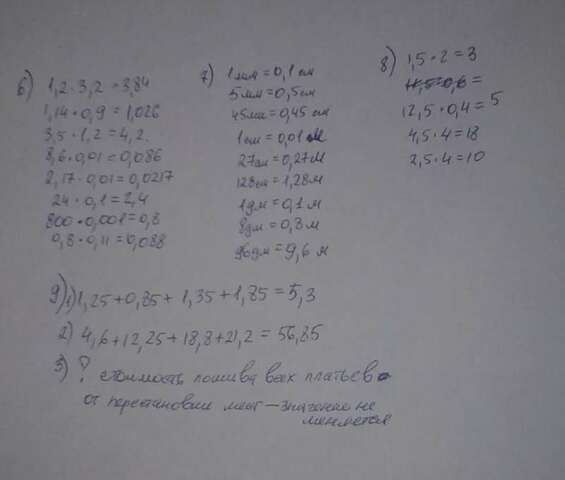 6) 1,2·3,2=3,84
1,14·0,9=1,026
3,5·1,2=4,2.
8,6·0,01=0,086
2,17·0,01=0,0217
24·0,1=2,4
800·0,001=0,8
0,8·0,11=0,088
7) 1мм=0,1см
5мм=0,5см
45мм=0,45см
1см=0,01м
27см=0,27м
128см=1,28м
1дм=0,1м
8дм=0,8м
96дм=9,6м
8) 1,5·2=3
12,5·0,4=5
4,5·4=18
2,5·4=10
9) 1) 1,25+0,85+1,35+1,85=5,3
2) 4,6+12,25+18,8+21,2=56,85
3) ? стоимость пошива всех платьев
от перестановки мест – значение не
меняется